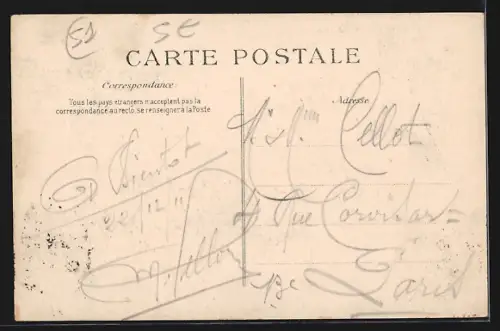 51 SE
CARTE POSTALE
Correspondance
Adresse
Tous les pays étrangers n'acceptent pas la
correspondance au recto, se renseigner à la Poste
A Bientot
22/12/11
Cellot
Rue Corvisart
13e
Paris